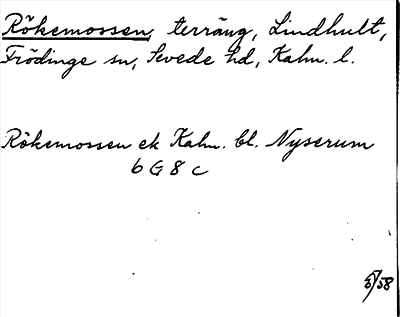 Rökemossen, terräng, Lindhult,
Frödinge sn, Sevede hd, Kalm. l.
Rökemossen ek Kalm. bl. Nyserum
6 G 8 c
5/58